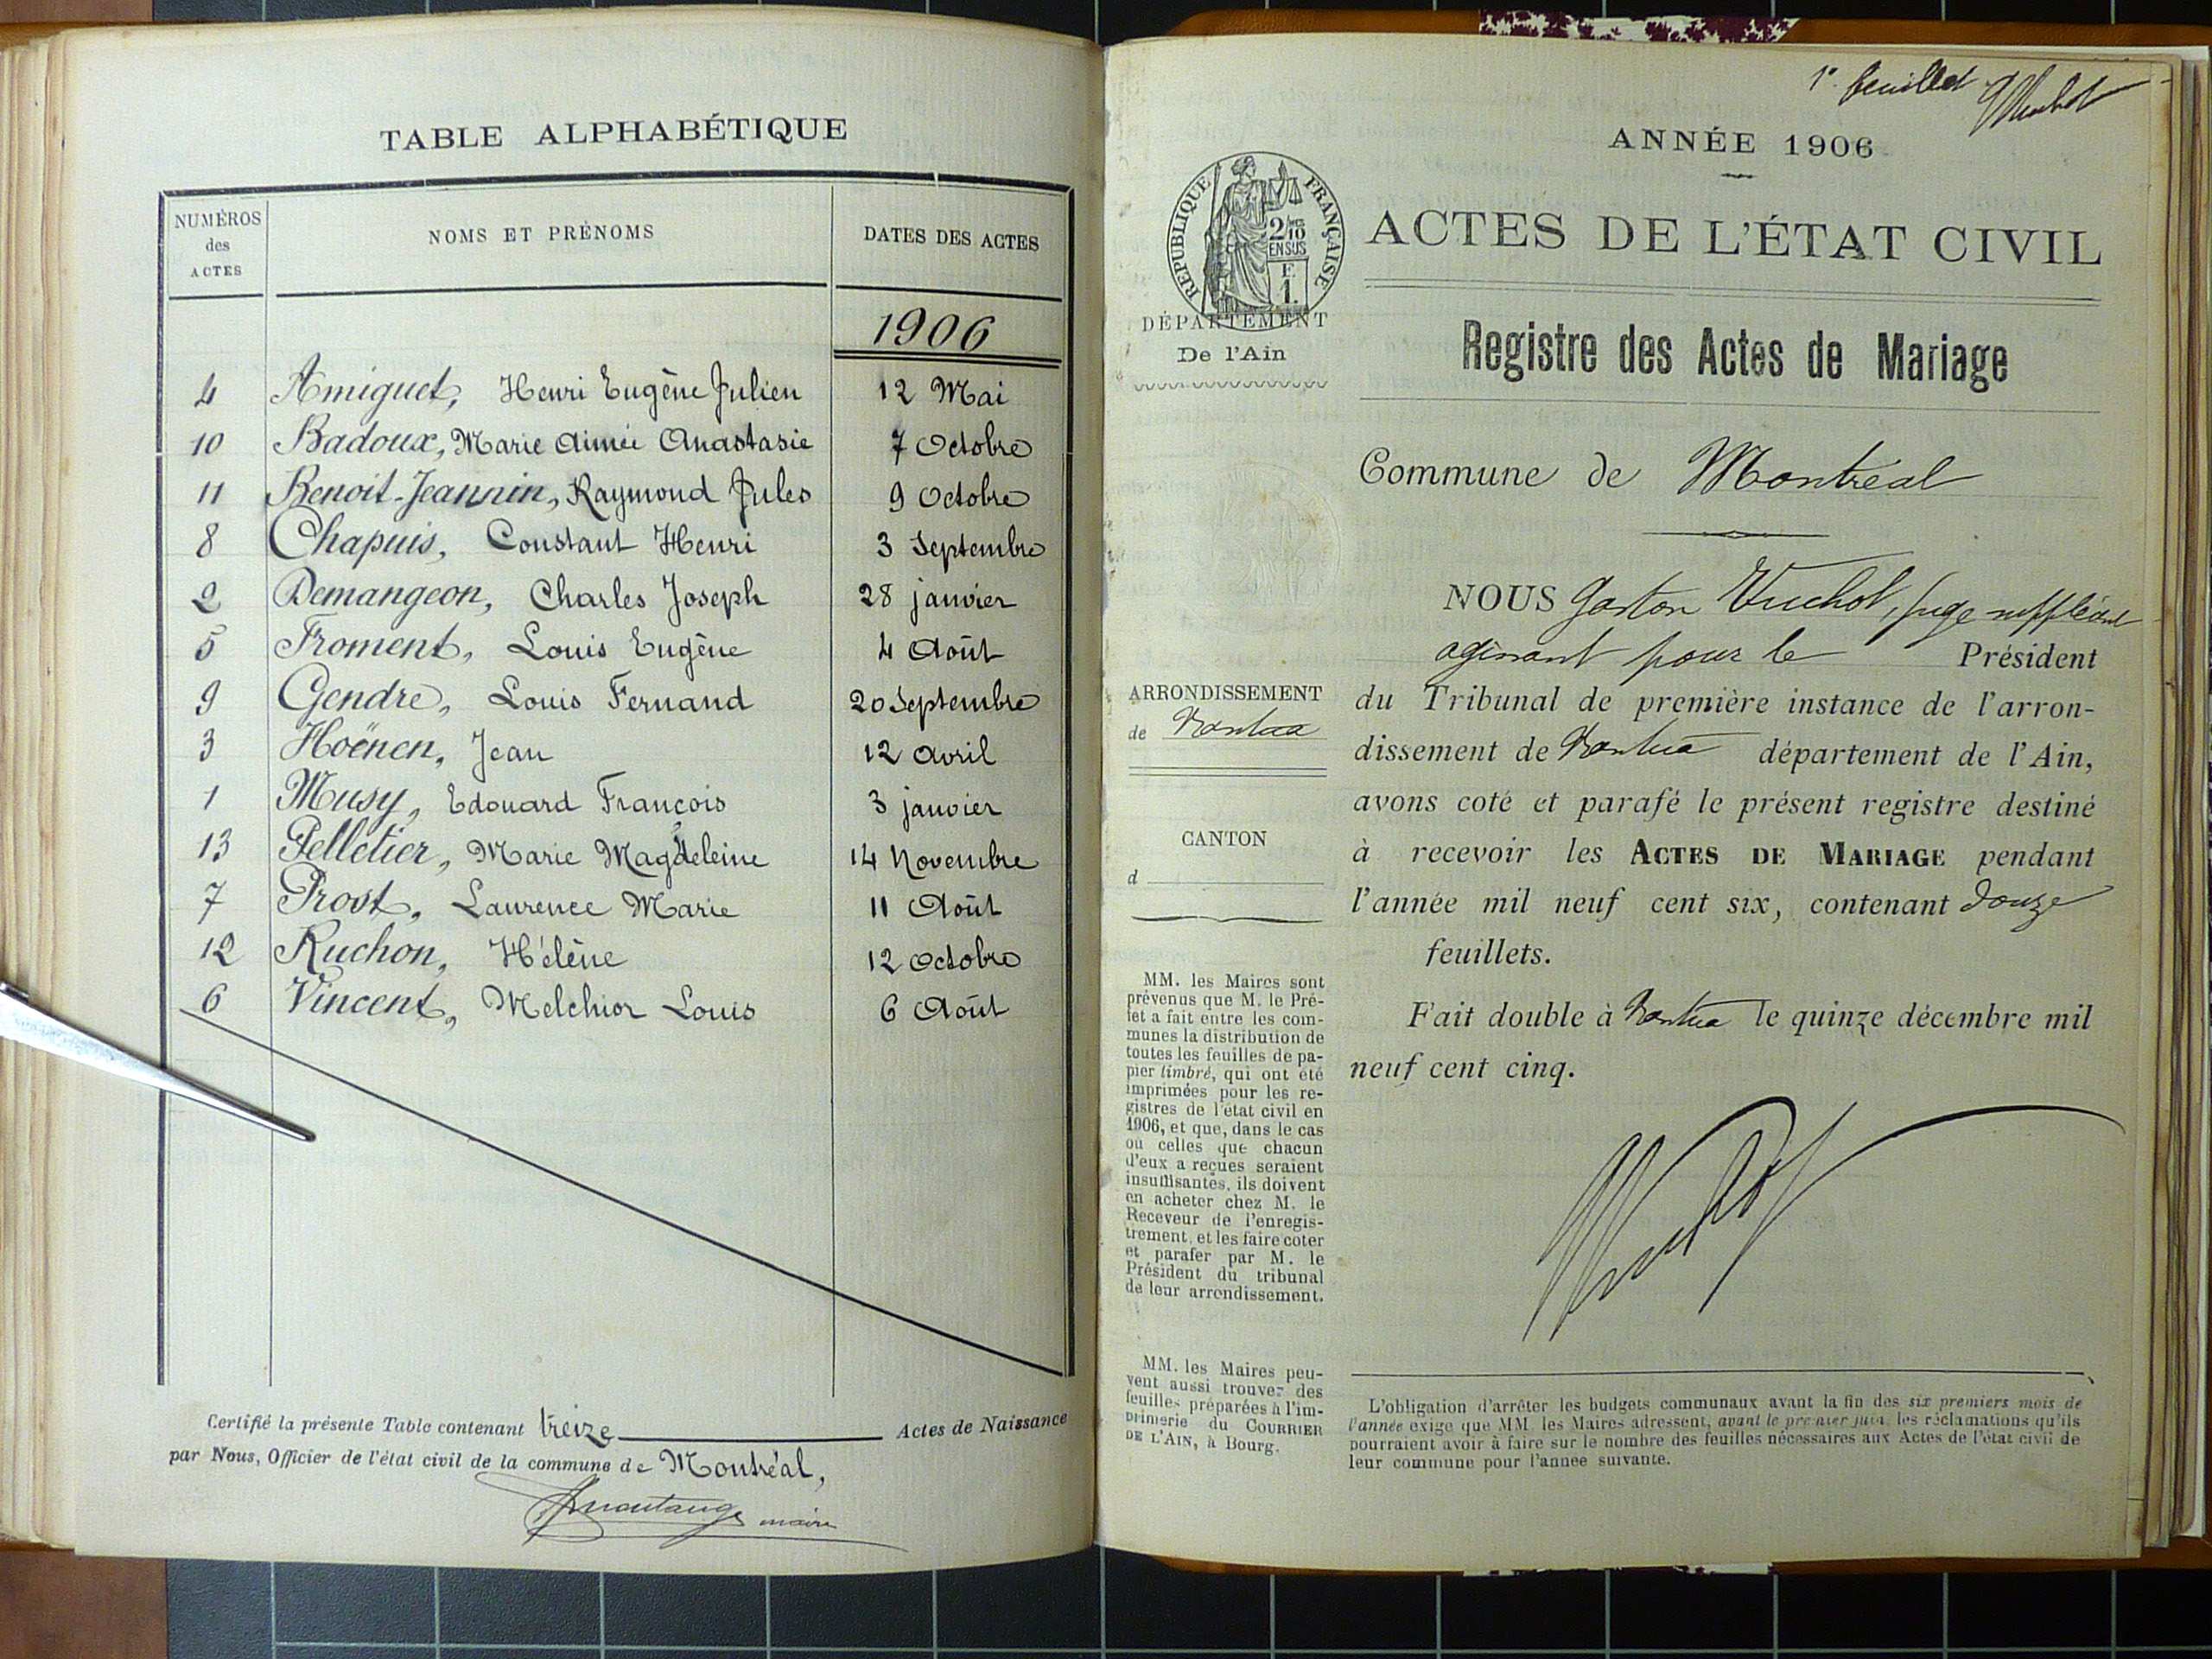 TABLE ALPHABÉTIQUE
NUMÉROS
des
ACTES
NOMS ET PRÉNOMS
DATES DES ACTES
1906
4 Amiguet, Henri Eugène Julien 12 Mai
10 Badoux, Marie Aimée Anastasie 7 Octobre
11 Benoit-Jeannin, Raymond Jules 9 Octobre
8 Chapuis, Constant Henri 3 Septembre
2 Demangeon, Charles Joseph 28 janvier
5 Froment, Louis Eugène 4 Août
9 Gendre, Louis Fernand 20 Septembre
3 Hoënen, Jean 12 Avril
1 Musy, Edouard François 3 janvier
13 Pelletier, Marie Magdeleine 14 Novembre
7 Prost, Laurence Marie 11 Août
12 Ruchon, Hélène 12 Octobre
6 Vincent, Melchior Louis 6 Août
Certifié la présente Table contenant treize Actes de Naissance
par Nous, Officier de l'état civil de la commune de Montréal,
maire
1er feuillet
ANNÉE 1906
RÉPUBLIQUE FRANÇAISE
2/10
EN SUS
F.
1.
ACTES DE L'ÉTAT CIVIL
DÉPARTEMENT
De l'Ain
Registre des Actes de Mariage
Commune de Montréal
NOUS Gaston Vuchot, juge suppléant
agissant pour le Président
du Tribunal de première instance de l'arron-
dissement de Nantua département de l'Ain,
avons coté et parafé le présent registre destiné
à recevoir les ACTES DE MARIAGE pendant
l'année mil neuf cent six, contenant douze
feuillets.
Fait double à Nantua le quinze décembre mil
neuf cent cinq.
ARRONDISSEMENT
de Nantua
CANTON
d
MM. les Maires sont
prévenus que M. le Pré-
fet a fait entre les com-
munes la distribution de
toutes les feuilles de pa-
pier timbré, qui ont été
imprimées pour les re-
gistres de l'état civil en
1906, et que, dans le cas
où celles que chacun
d'eux a reçues seraient
insuffisantes, ils doivent
en acheter chez M. le
Receveur de l'enregis-
trement, et les faire coter
et parafer par M. le
Président du tribunal
de leur arrondissement.
MM. les Maires peu-
vent aussi trouver des
feuilles préparées à l'im-
primerie du COURRIER
DE L'AIN, à Bourg.
L'obligation d'arrêter les budgets communaux avant la fin des six premiers mois de
l'année exige que MM. les Maires adressent, avant le premier juin, les réclamations qu'ils
pourraient avoir à faire sur le nombre des feuilles nécessaires aux Actes de l'état civil de
leur commune pour l'année suivante.